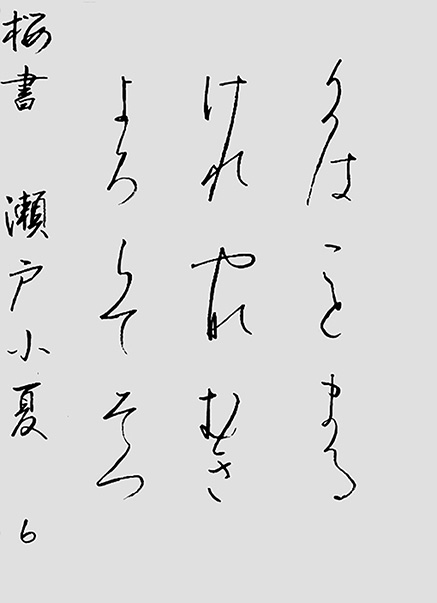 うは こと まる
けれ やれ むさ
よろ らて そつ
桜書 瀬戸小夏 6